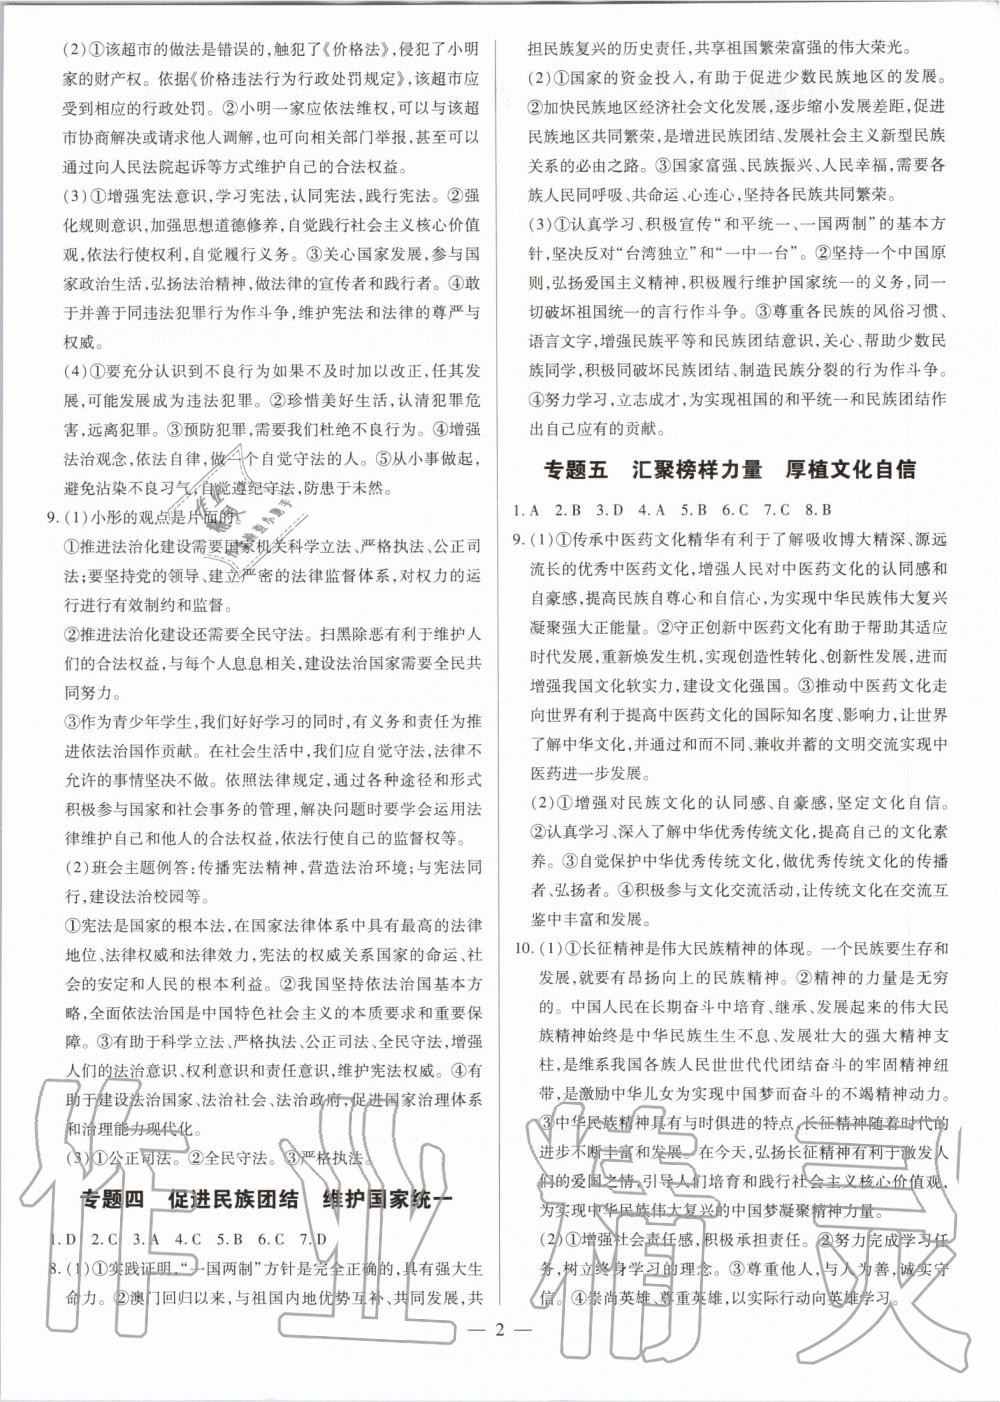 (2)①该超市的做法是错误的,触犯了《价格法》,侵犯了小明
家的财产权。依据《价格违法行为行政处罚规定》,该超市应
受到相应的行政处罚。②小明一家应依法维权,可以与该超
市协商解决或请求他人调解,也可向相关部门举报,甚至可以
通过向人民法院起诉等方式维护自己的合法权益。
(3)①增强宪法意识,学习宪法,认同宪法,践行宪法。②强
化规则意识,加强思想道德修养,自觉践行社会主义核心价值
观,依法行使权利,自觉履行义务。③关心国家发展,参与国
家政治生活,弘扬法治精神,做法律的宣传者和践行者。④敢
于并善于同违法犯罪行为作斗争,维护宪法和法律的尊严与
权威。
(4)①要充分认识到不良行为如果不及时加以改正,任其发
展,可能发展成为违法犯罪。②珍惜美好生活,认清犯罪危
害,远离犯罪。③预防犯罪,需要我们杜绝不良行为。④增强
法治观念,依法自律,做一个自觉守法的人。⑤从小事做起,
避免沾染不良习气,自觉遵纪守法,防患于未然。
9.(1)小彤的观点是片面的。
①推进法治化建设需要国家机关科学立法、严格执法、公正司
法;要坚持党的领导、建立严密的法律监督体系,对权力的运
行进行有效制约和监督。
②推进法治化建设还需要全民守法。扫黑除恶有利于维护人
们的合法权益,与每个人息息相关,建设法治国家需要全民共
同努力。
③作为青少年学生,我们好好学习的同时,有义务和责任为推
进依法治国作贡献。在社会生活中,我们应自觉守法,法律不
允许的事情坚决不做。依照法律规定,通过各种途径和形式
积极参与国家和社会事务的管理,解决问题时要学会运用法
律维护自己和他人的合法权益,依法行使自己的监督权等。
(2)班会主题例答:传播宪法精神,营造法治环境;与宪法同
行,建设法治校园等。
①宪法是国家的根本法,在国家法律体系中具有最高的法律
地位、法律权威和法律效力,宪法的权威关系国家的命运、社
会的安定和人民的根本利益。②我国坚持依法治国基本方
略,全面依法治国是中国特色社会主义的本质要求和重要保
障。③有助于科学立法、严格执法、公正司法、全民守法,增强
人们的法治意识、权利意识和责任意识,维护宪法权威。④有
助于建设法治国家、法治社会、法治政府,促进国家治理体系
和治理能力现代化。
(3)①公正司法。②全民守法。③严格执法。
专题四 促进民族团结 维护国家统一
1.D 2.C 3.A 4.C 5.C 6.C 7.D
8.(1)①实践证明,“一国两制”方针是完全正确的,具有强大生
命力。②澳门回归以来,与祖国内地优势互补、共同发展,共
担民族复兴的历史责任,共享祖国繁荣富强的伟大荣光。
(2)①国家的资金投入,有助于促进少数民族地区的发展。
②加快民族地区经济社会文化发展,逐步缩小发展差距,促进
民族地区共同繁荣,是增进民族团结、发展社会主义新型民族
关系的必由之路。③国家富强、民族振兴、人民幸福,需要各
族人民同呼吸、共命运、心连心,坚持各民族共同繁荣。
(3)①认真学习、积极宣传“和平统一、一国两制”的基本方
针,坚决反对“台湾独立”和“一中一台”。②坚持一个中国原
则,弘扬爱国主义精神,积极履行维护国家统一的义务,同一
切破坏祖国统一的言行作斗争。③尊重各民族的风俗习惯、
语言文字,增强民族平等和民族团结意识,关心、帮助少数民
族同学,积极同破坏民族团结、制造民族分裂的行为作斗争。
④努力学习,立志成才,为实现祖国的和平统一和民族团结作
出自己应有的贡献。
专题五 汇聚榜样力量 厚植文化自信
1.A 2.B 3.D 4.A 5.B 6.C 7.C 8.B
9.(1)①传承中医药文化精华有利于了解吸收博大精深、源远
流长的优秀中医药文化,增强人民对中医药文化的认同感和
自豪感,提高民族自尊心和自信心,为实现中华民族伟大复兴
凝聚强大正能量。②守正创新中医药文化有助于帮助其适应
时代发展,重新焕发生机,实现创造性转化、创新性发展,进而
增强我国文化软实力,建设文化强国。③推动中医药文化走
向世界有利于提高中医药文化的国际知名度、影响力,让世界
了解中华文化,并通过和而不同、兼收并蓄的文明交流实现中
医药进一步发展。
(2)①增强对民族文化的认同感、自豪感,坚定文化自信。
②认真学习、深入了解中华优秀传统文化,提高自己的文化素
养。③自觉保护中华优秀传统文化,做优秀传统文化的传播
者、弘扬者。④积极参与文化交流活动,让传统文化在交流互
鉴中丰富和发展。
10.(1)①长征精神是伟大民族精神的体现。一个民族要生存和
发展,就要有昂扬向上的民族精神。②精神的力量是无穷
的。中国人民在长期奋斗中培育、继承、发展起来的伟大民
族精神始终是中华民族生生不息、发展壮大的强大精神支
柱,是维系我国各族人民世世代代团结奋斗的牢固精神纽
带,是激励中华儿女为实现中国梦而奋斗的不竭精神动力。
③中华民族精神具有与时俱进的特点,长征精神随着时代的
进步不断丰富和发展。在今天,弘扬长征精神有利于激发人
们的爱国之情,引导人们培育和践行社会主义核心价值观,
为实现中华民族伟大复兴的中国梦凝聚精神力量。
(2)①增强社会责任感,积极承担责任。②努力完成学习任
务,树立终身学习的理念。③与人为善,乐于助人,诚实守
信。④崇尚英雄、尊重英雄,以实际行动向英雄学习。
— 2 —
作业精灵